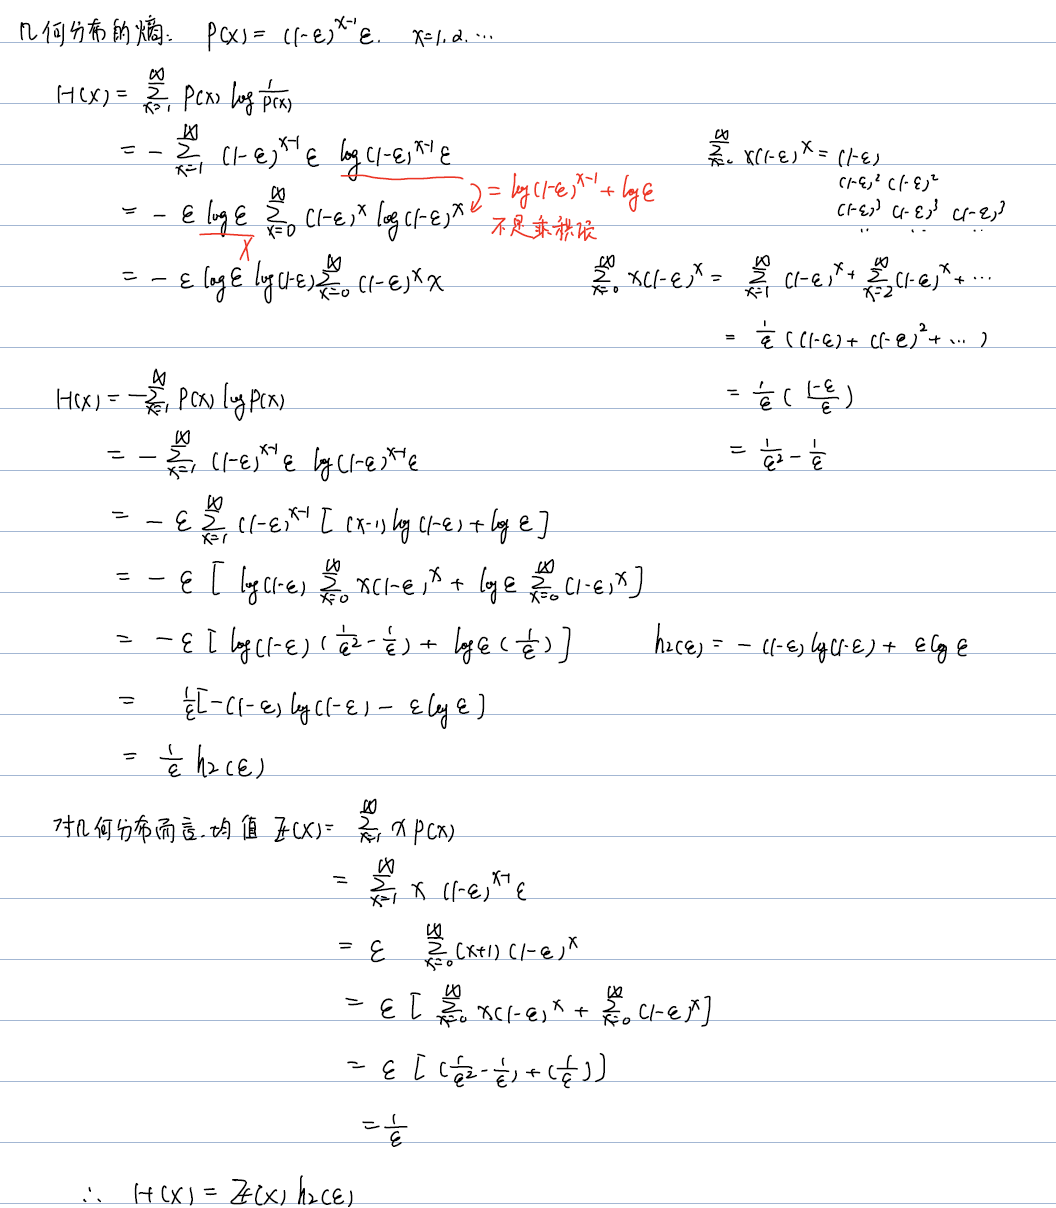 几何分布的熵: P(x) = (1-ε)^{x-1} ε. x=1,2,...
H(X) = \sum_{x=1}^{∞} P(x) log \frac{1}{P(x)}
= - \sum_{x=1}^{∞} (1-ε)^{x-1} ε log (1-ε)^{x-1} ε
= log(1-ε)^{x-1} + log ε
不是乘积
= - ε log ε \sum_{x=0}^{∞} (1-ε)^x log (1-ε)^x
X
= - ε log ε log(1-ε) \sum_{x=0}^{∞} (1-ε)^x x
\sum_{x=0}^{∞} x(1-ε)^x = (1-ε)
(1-ε)^2 (1-ε)^2
(1-ε)^3 (1-ε)^3 (1-ε)^3
\sum_{x=0}^{∞} x(1-ε)^x = \sum_{x=1}^{∞} (1-ε)^x + \sum_{x=2}^{∞} (1-ε)^x + ...
= \frac{1}{ε} ((1-ε) + (1-ε)^2 + ...)
= \frac{1}{ε} (\frac{1-ε}{ε})
= \frac{1}{ε^2} - \frac{1}{ε}
H(X) = - \sum_{x=1}^{∞} P(x) log P(x)
= - \sum_{x=1}^{∞} (1-ε)^{x-1} ε log (1-ε)^{x-1} ε
= - ε \sum_{x=1}^{∞} (1-ε)^{x-1} [(x-1) log(1-ε) + log ε]
= - ε [log(1-ε) \sum_{x=0}^{∞} x(1-ε)^x + log ε \sum_{x=0}^{∞} (1-ε)^x]
= - ε [log(1-ε) (\frac{1}{ε^2} - \frac{1}{ε}) + log ε (\frac{1}{ε})]
h_2(ε) = - (1-ε) log(1-ε) + ε log ε
= \frac{1}{ε} [-(1-ε) log(1-ε) - ε log ε]
= \frac{1}{ε} h_2(ε)
对几何分布而言, 均值 E(X) = \sum_{x=1}^{∞} x P(x)
= \sum_{x=1}^{∞} x (1-ε)^{x-1} ε
= ε \sum_{x=0}^{∞} (x+1) (1-ε)^x
= ε [\sum_{x=0}^{∞} x(1-ε)^x + \sum_{x=0}^{∞} (1-ε)^x]
= ε [(\frac{1}{ε^2} - \frac{1}{ε}) + (\frac{1}{ε})]
= \frac{1}{ε}
∴ H(X) = E(X) h_2(ε)